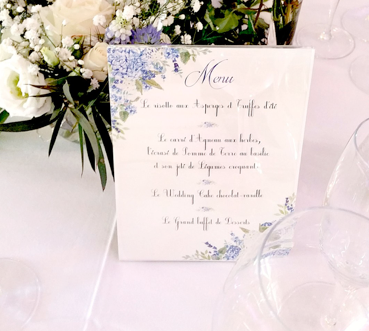 Menu
Le risotto aux Asperges et Truffes d'été
Le carré d'Agneau aux herbes,
l'écrasé de Pomme de Terre au basilic
et son jeté de Légumes croquants
Le Wedding Cake chocolat-vanille
Le Grand buffet de Desserts